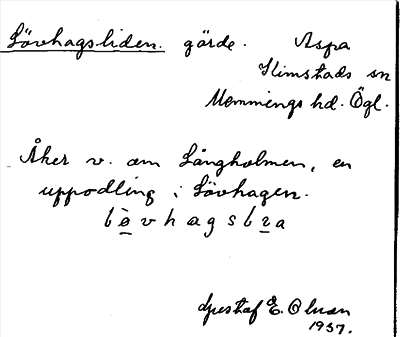 Lövhagsliden. gärde. Aspa
Kimstads sn
Memmings hd. Ögl.
Åker v. om Långholmen, en
uppodling i Lövhagen.
Gustaf E. Olsson
1937.